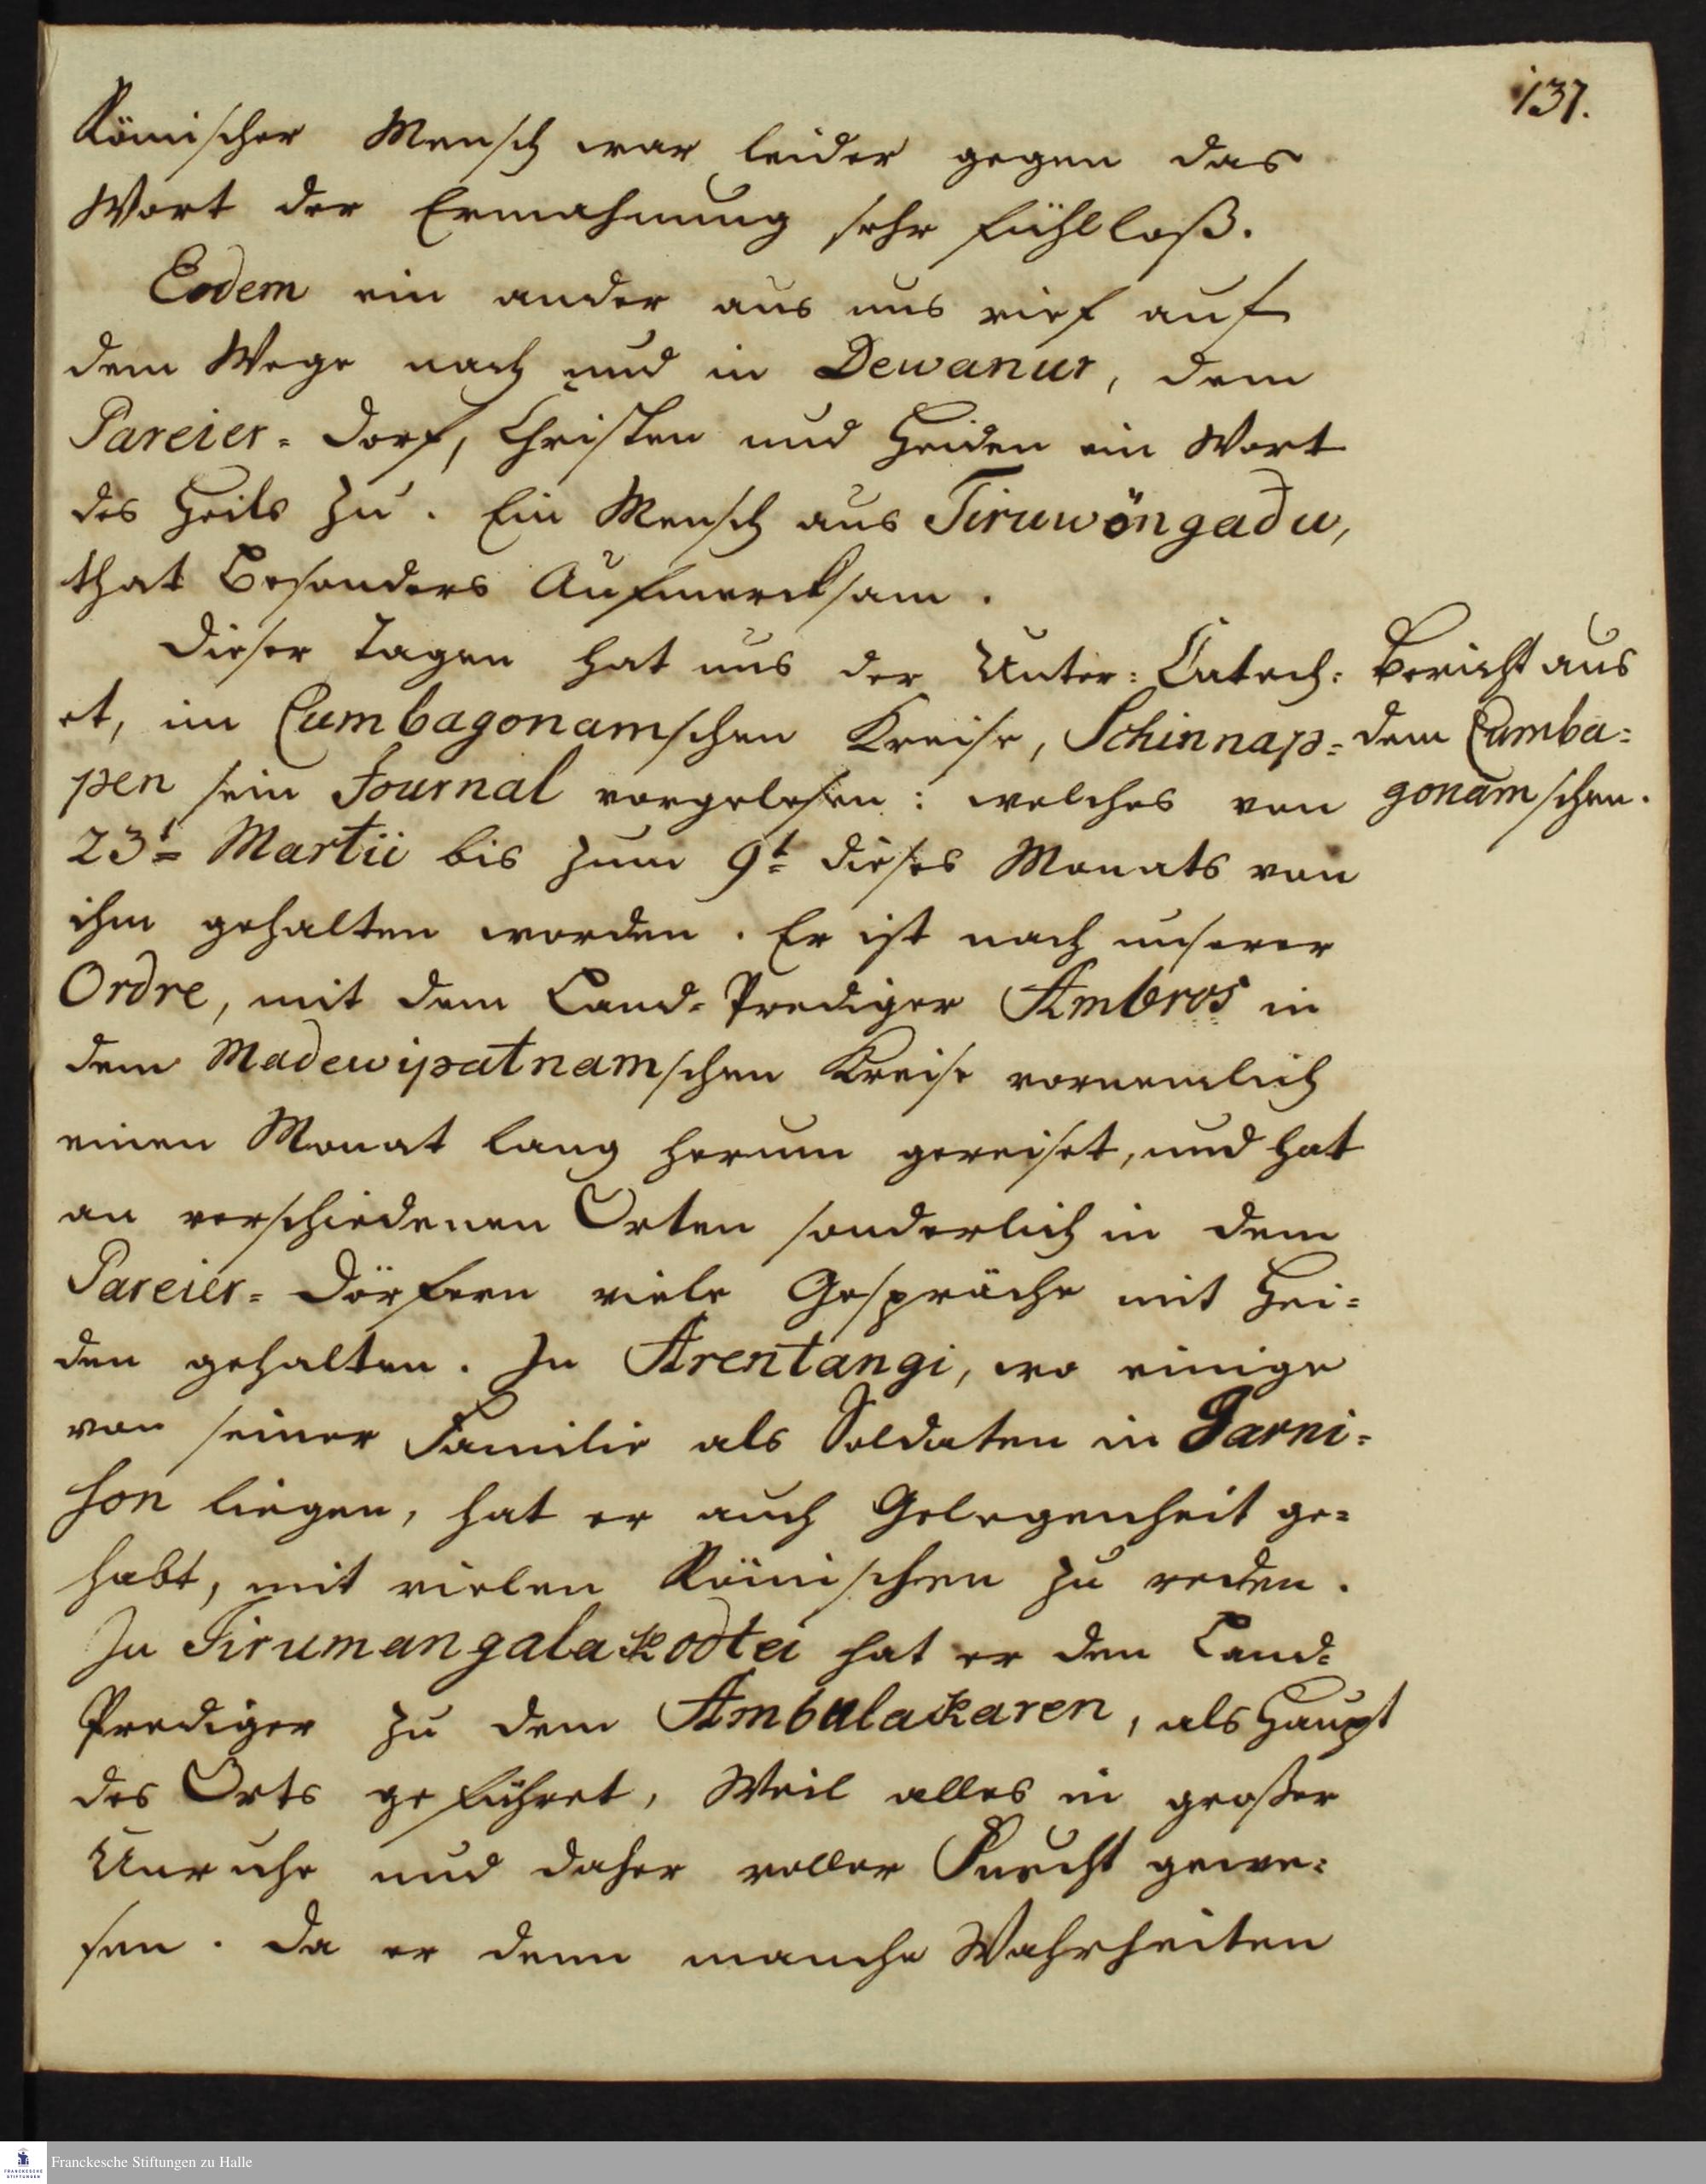 137.
Römischer Mensch war leider gegen das
Wort der Ermahnung sehr fühlloß.
Eodem ein ander aus uns rief auf
dem Wege nach und in Dewanur, dem
Pareier-Dorf, Christen und Heiden ein Wort
des Heils zu. Ein Mensch aus Tiruwöngadu,
that besonders Aufmercksam.
Dieser Tagen hat uns der Unter-Catech:
et, im Cumbagonamschen Kreise, Schinnap-
pen sein Journal vorgelesen: welches von
23t Martii bis zum 9t dieses Monats von
ihm gehalten worden. Er ist nach unserer
Ordre, mit dem Land-Prediger Ambros in
dem Madewipatnamschen Kreise vornemlich
einen Monat lang herum gereiset, und hat
an verschiedenen Orten sonderlich in dem
Pareier-Dörfern viele Gespräche mit Hei-
den gehalten. In Arentangi, wo einige
von seiner Familie als Soldaten in Garni-
son liegen, hat er auch Gelegenheit ge-
habt, mit vielen Römischen zu reden.
In Tirumangalakodtei hat er den Land-
Prediger zu dem Ambalakaren, als Haupt
des Orts geführet, Weil alles in großer
Unruhe und daher voller Furcht gewe-
sen. Da er denn manche Wahrheiten
Bericht aus
dem Cumba-
gonamschen.
Franckesche Stiftungen zu Halle
FRANCKESCHE
STIFTUNGEN